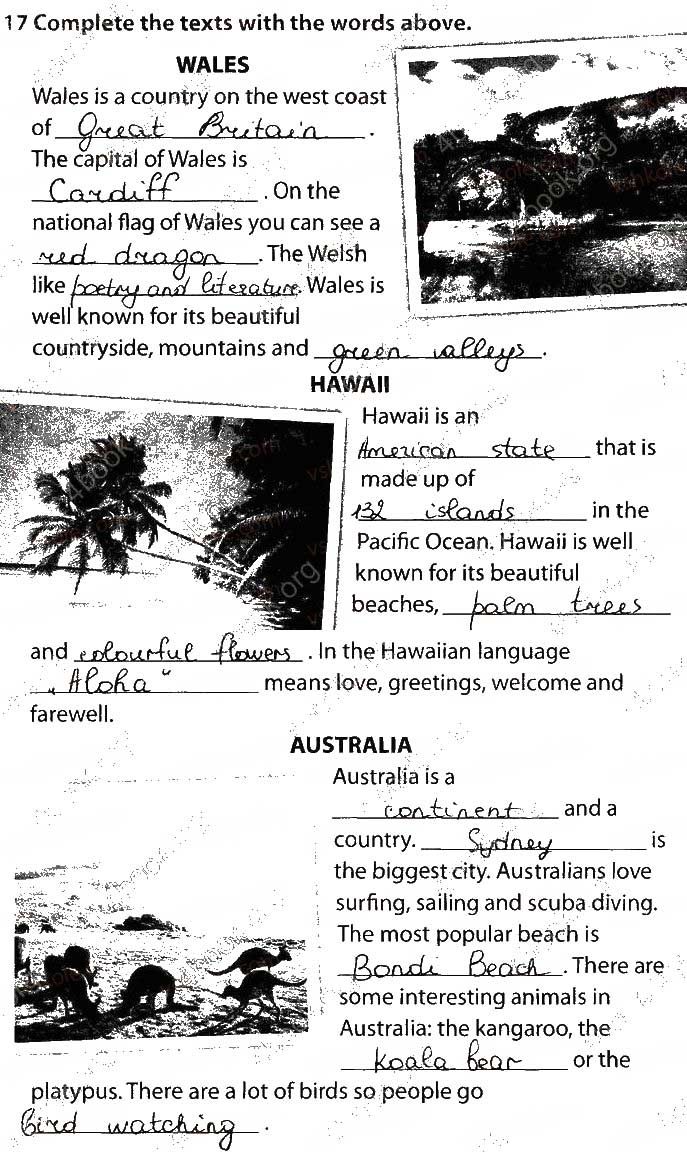 17 Complete the texts with the words above.
WALES
Wales is a country on the west coast
of Great Britain.
The capital of Wales is
Cardiff. On the
national flag of Wales you can see a
red dragon. The Welsh
like poetry and literature. Wales is
well known for its beautiful
countryside, mountains and green valleys.
HAWAII
Hawaii is an
American state that is
made up of
132 islands in the
Pacific Ocean. Hawaii is well
known for its beautiful
beaches, palm trees
and colourful flowers. In the Hawaiian language
„Aloha“ means love, greetings, welcome and
farewell.
AUSTRALIA
Australia is a
continent and a
country. Sydney is
the biggest city. Australians love
surfing, sailing and scuba diving.
The most popular beach is
Bondi Beach. There are
some interesting animals in
Australia: the kangaroo, the
koala bear or the
platypus. There are a lot of birds so people go
bird watching.